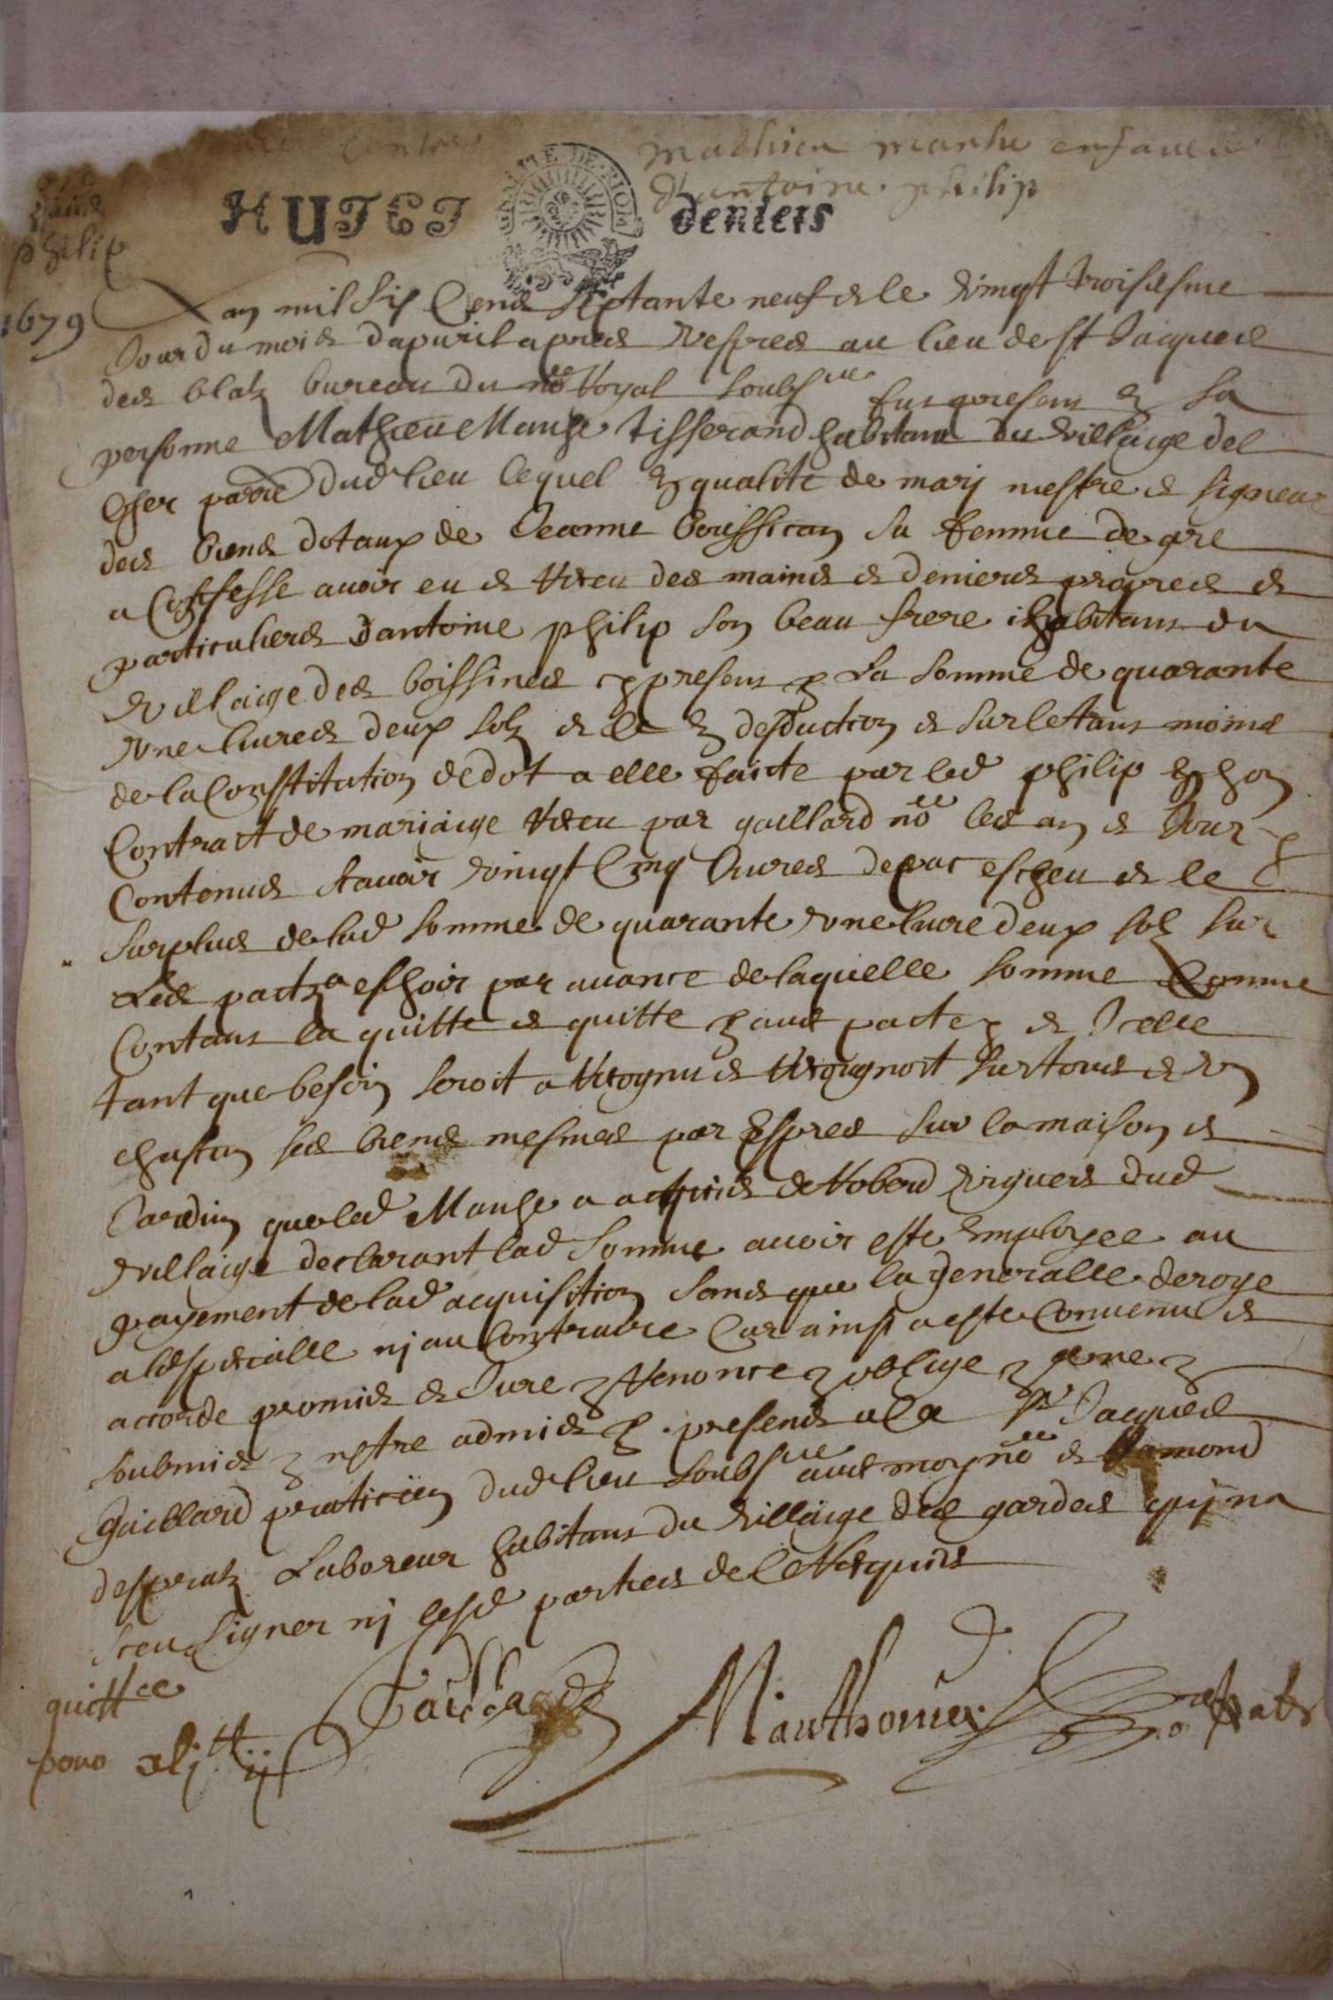 mathieu manhe enfaveur
d'antoine philip
HUICT deniers
GENERALITE DE RIOM
philip
1679
Lan mil six Cens septante neuf & le vingt troisiesme
Jour du mois dapvril apres vespres au lieu de st Jacques
des blatz bureau du nore Royal soubsne fut presens en sa
personne Mathieu Manhe tisserand habitant du villaige del
Cher parre dud lieu lequel en qualité de mary mestre & signeur
des biens dotaux de Jeanne boissican sa femme de gre
a Confesse avoir eu & Receu des mains & deniers propres &
particuliers dantoine philip son beau frere habitans du
villaige des boissines presens la somme de quarante
une livres deux solz & ce en desduction & sur & tans moins
de la Constitution de dot a elle faicte par led philip en son
Contract de mariaige Receu par gaillard nore les an & Jour
Contenus scavoir vingt Cinq livres de pac escheu & le
surplus de lad somme de quarante une livre deux solz sur
Les pactz a eschoir par avance de laquelle somme Comme
Contans la quitte & quitte avec pacte & Icelle
tant que besoin seroit a Recognu & Recougnoit sur tous & un
chascun ses biens mesmes par Expres sur la maison &
Jardin que led Manhe a acquis de Roberd viguers dud
villaige declarant lad somme avoir este Employee au
payement de lad acquisition sans que la generalle deroge
a lespecialle nj au Contraire Car ainsi a este Convenu &
accorde promis & Jure Renonce oblige
soubmis nostre admis presens a Ce Sr Jacques
Gaillard praticien dud lieu soubsne avec moy nore & Ramond
despratz Laboreur habitans du villaige des gardes quj na
sceu signer nj lesd parties de ce Requis
Gaillard Manthomier no Royal
quittce
pour xlj tt ij s